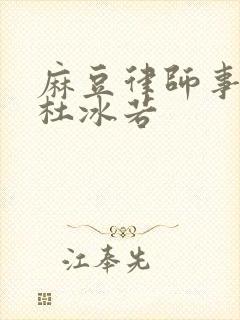 麻豆律師事
杜冰若
江奉先